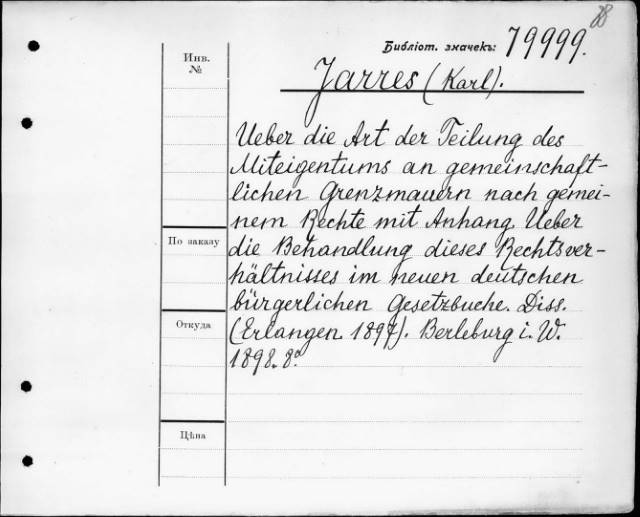 28
Библіот. значекъ: 79999.
Инв.
№
Jarres (Karl).
Ueber die Art der Teilung des
Miteigentums an gemeinschaft-
lichen Grenzmauern nach gemei-
nem Rechte mit Anhang. Ueber
По заказу
die Behandlung dieses Rechtsver-
hältnisses im neuen deutschen
bürgerlichen Gesetzbuche. Diss.
Откуда
(Erlangen 1897). Berleburg i. W.
1898. 8º.
Цѣна